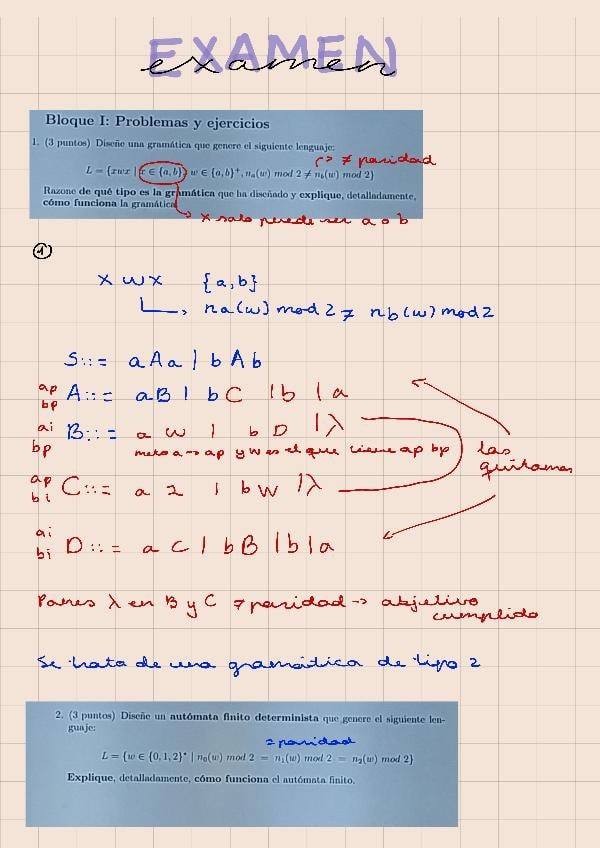 EXAMEN
examen
Bloque I: Problemas y ejercicios
1. (3 puntos) Diseñe una gramática que genere el siguiente lenguaje:
≠ paridad
L = {xwx | x ∈ {a, b}, w ∈ {a, b}⁺, nₐ(w) mod 2 ≠ n_b(w) mod 2}
Razone de qué tipo es la gramática que ha diseñado y explique, detalladamente,
cómo funciona la gramática.
x solo puede ser a o b
1
x w x {a, b}
na(w) mod 2 ≠ nb(w) mod 2
S::= aAa | bAb
ap bp A::= aB | bC | b | a
ai bp B::= a W | b D | λ
meto a → ap y W es el que tiene ap bp
las
quitamos
ap bi C::= a 2 | b W | λ
ai bi D::= a C | bB | b | a
Pones λ en B y C ≠ paridad → objetivo
cumplido
Se trata de una gramática de tipo 2
2. (3 puntos) Diseñe un autómata finito determinista que genere el siguiente len-
guaje:
= paridad
L = {w ∈ {0, 1, 2}* | n₀(w) mod 2 = n₁(w) mod 2 = n₂(w) mod 2}
Explique, detalladamente, cómo funciona el autómata finito.